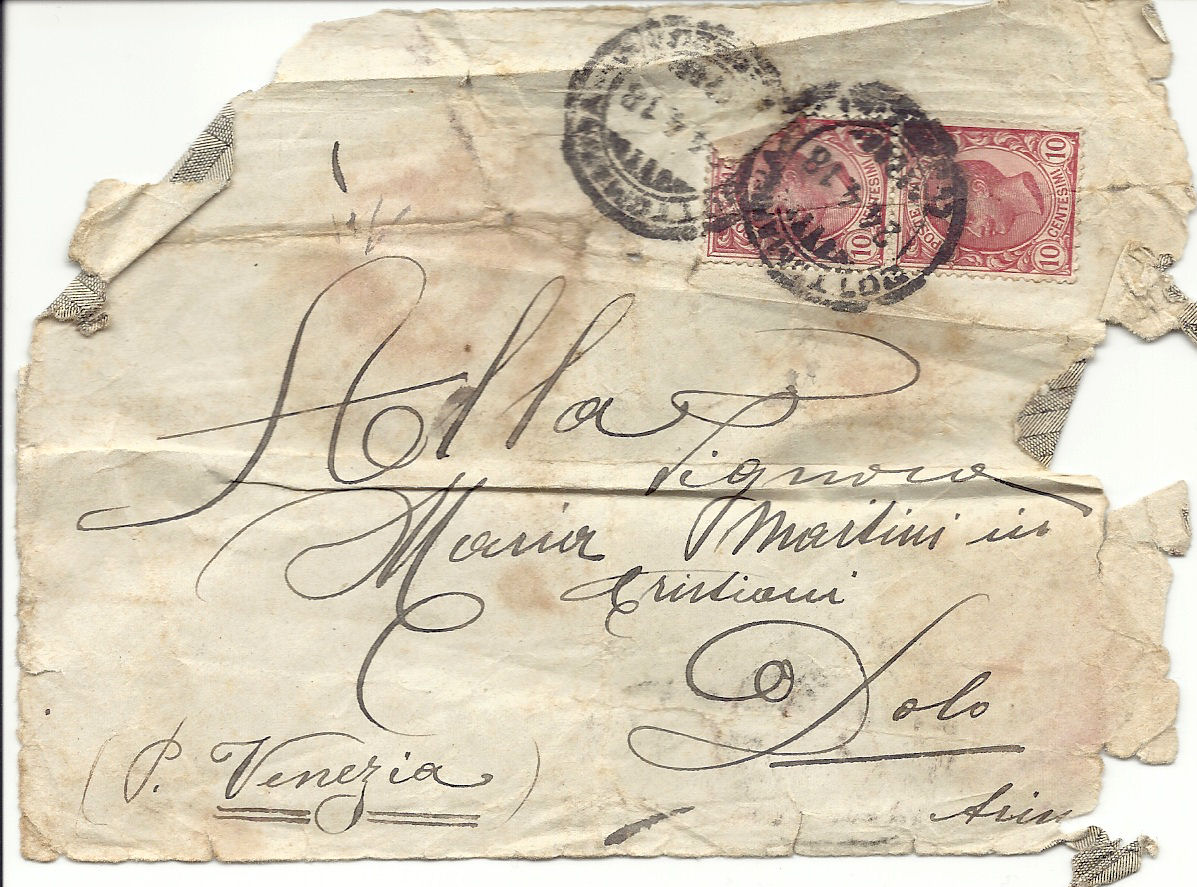 10
CENTESIMI
10
10
POSTE
CENTESIMI
10
Alla
Signora
Maria Martini in
Cristiani
Dolo
(P. Venezia)